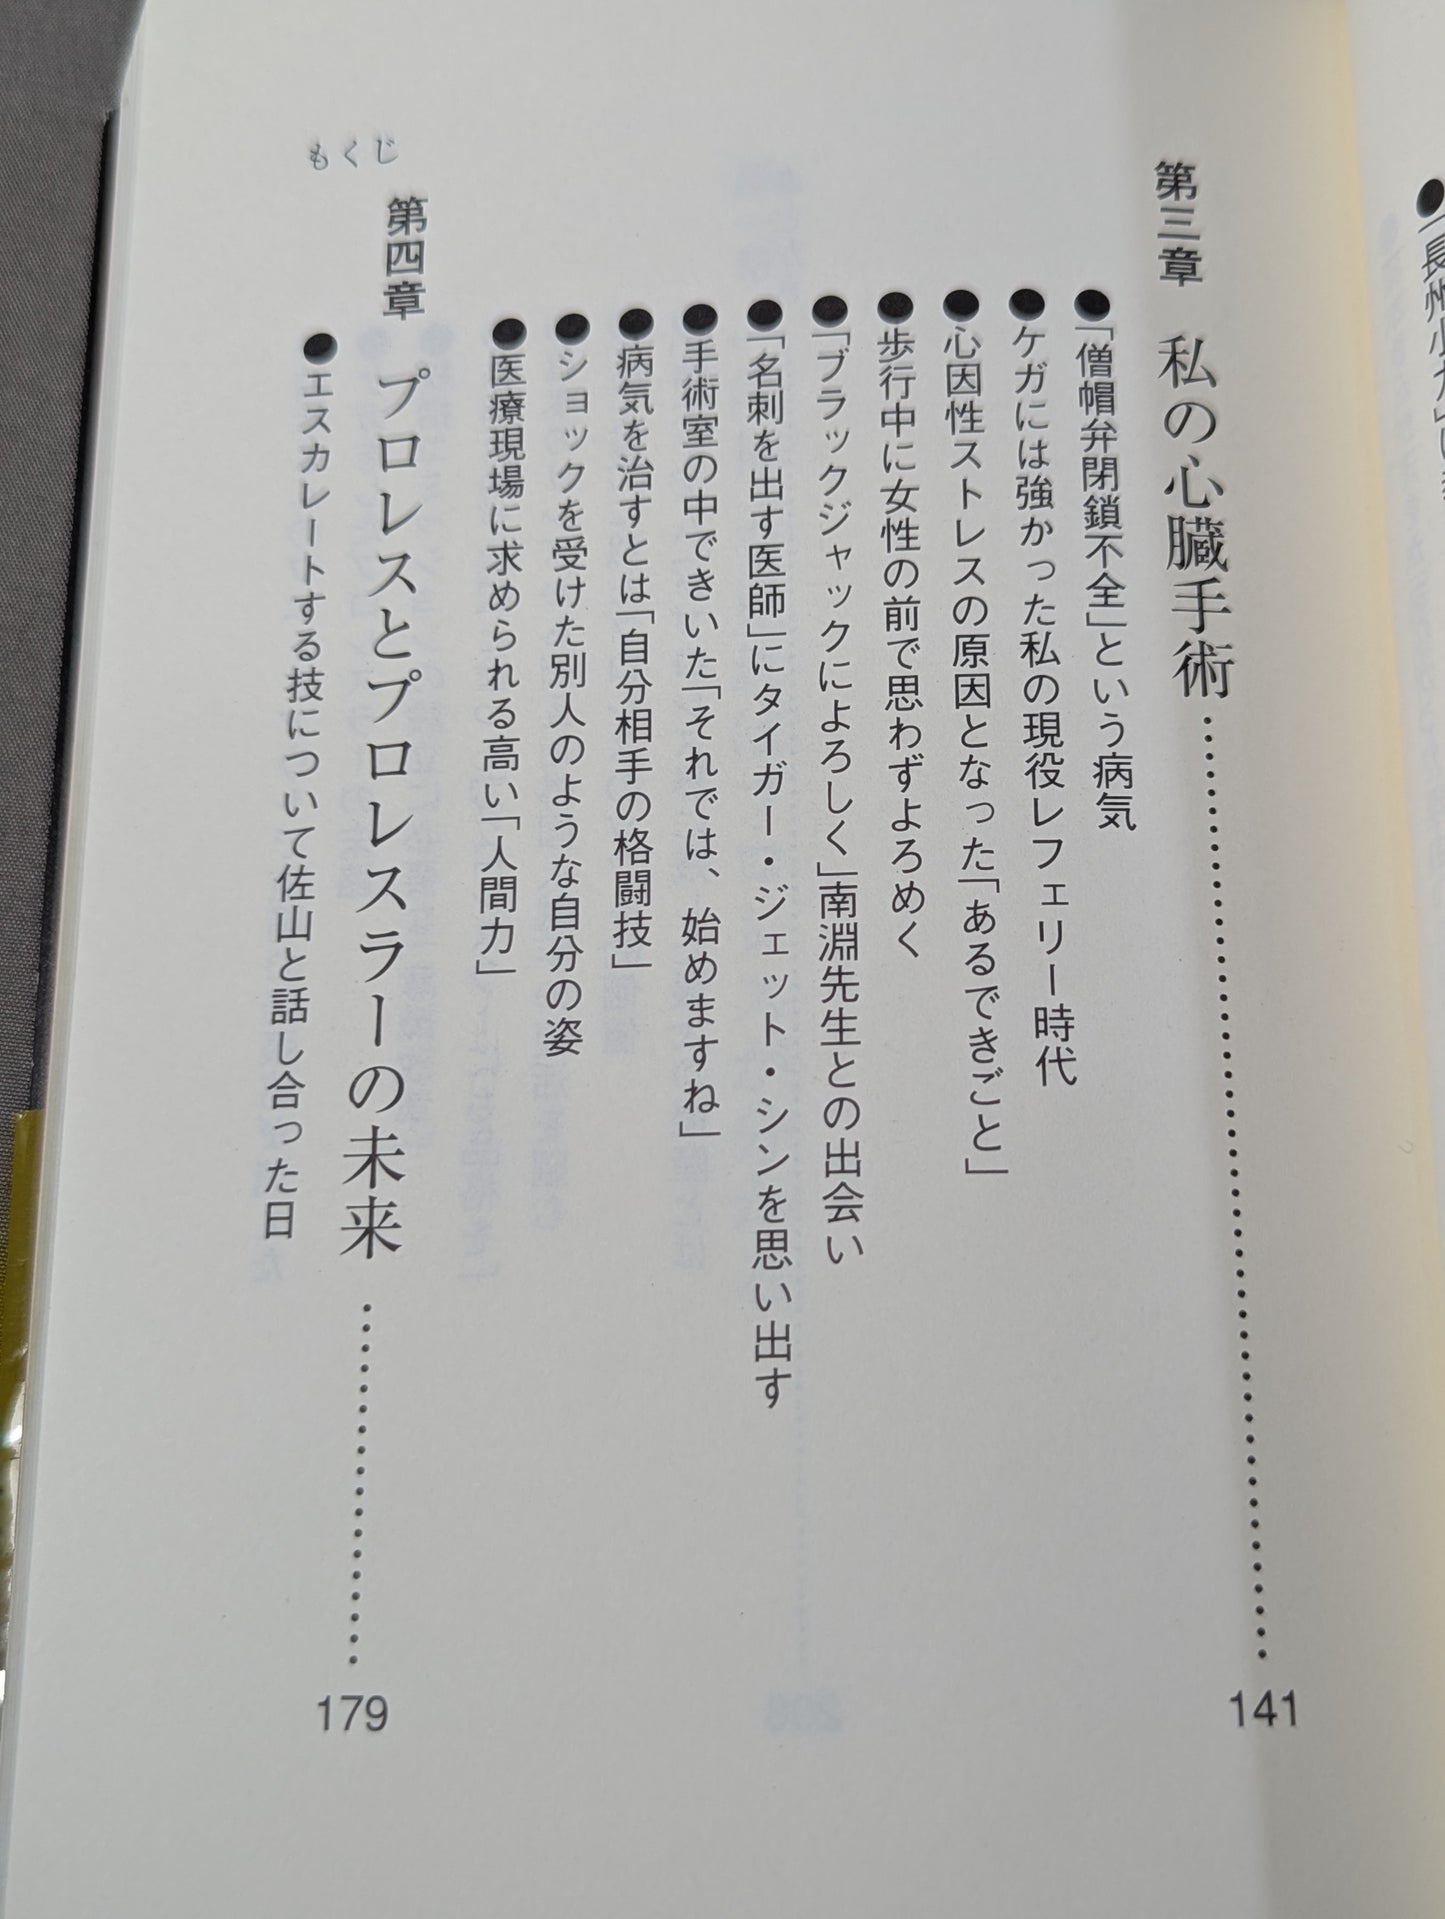 第三章 私の心臓手術…………141
●「僧帽弁閉鎖不全」という病気
●ケガには強かった私の現役レフェリー時代
●心因性ストレスの原因となった「あるできごと」
●歩行中に女性の前で思わずよろめく
●「ブラックジャックによろしく」南淵先生との出会い
●「名刺を出す医師」にタイガー・ジェット・シンを思い出す
●手術室の中できいた「それでは、始めますね」
●病気を治すとは「自分相手の格闘技」
●ショックを受けた別人のような自分の姿
●医療現場に求められる高い「人間力」
第四章 プロレスとプロレスラーの未来…………179
●エスカレートする技について佐山と話し合った日
もくじ